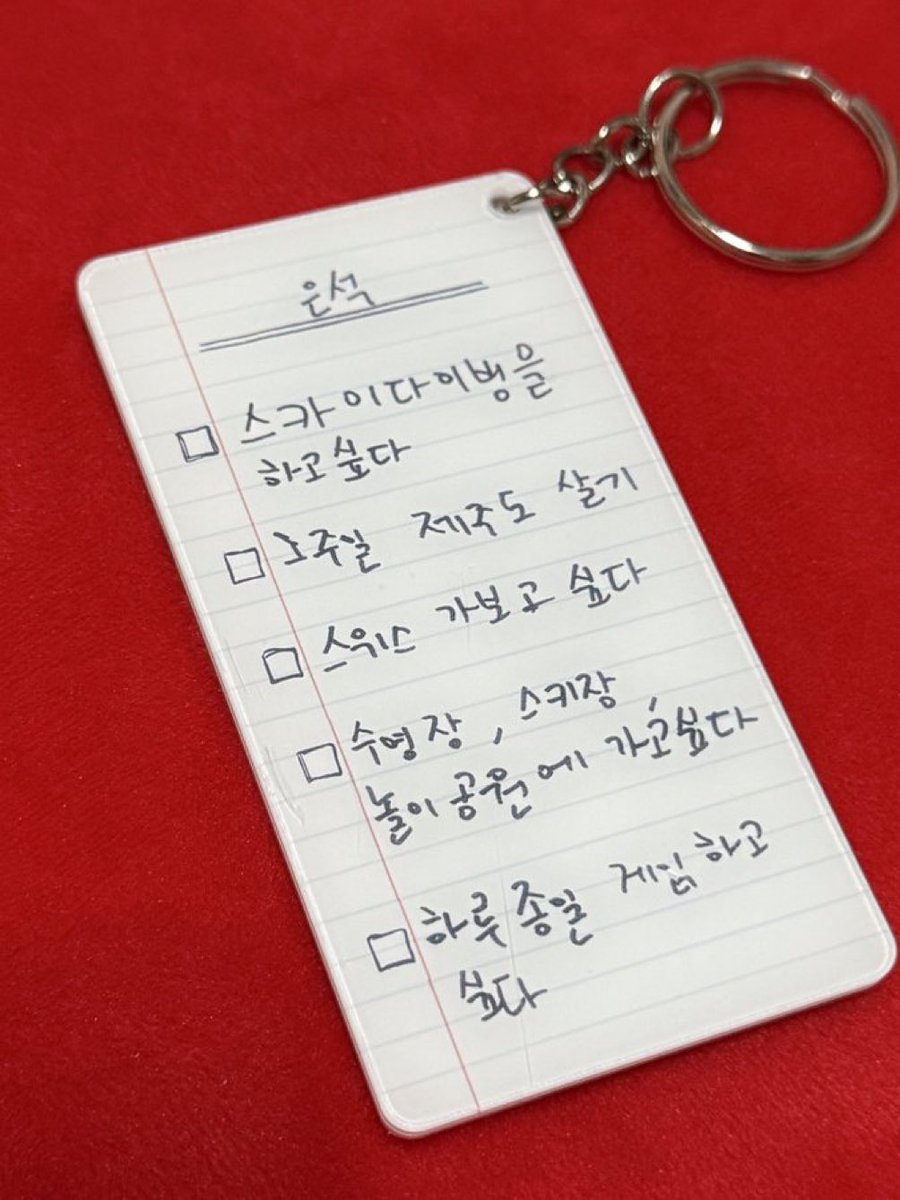 은석
스카이다이빙을
하고싶다
일주일 제주도 살기
스위스 가보고 싶다
수영장, 스키장,
놀이공원에 가고싶다
하루종일 게임하고
싶다